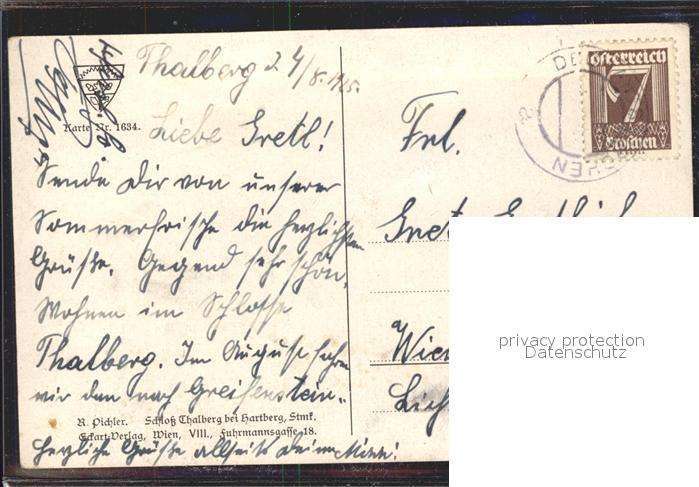 Thalberg 24/8. 1925.
Karte Nr. 1634.
Liebe Gretl!
Sende Dir von unserer
Sommerfrische die herzlichsten
Grüße. Gegend sehr schön.
Wohnen im Schlosse
Thalberg. Im August fahren
wir dann nach Greifenstein.
R. Pichler. Schloß Thalberg bei Hartberg, Stmk.
Eckart-Verlag, Wien, VIII., Fuhrmannsgasse 18.
Herzliche Grüße allseits deine
Österreich
7
Groschen
DE
Frl.
Wien
privacy protection
Datenschutz